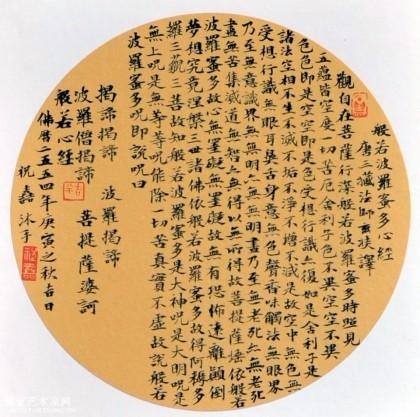 般若波羅蜜多心經
唐三藏法師玄奘譯
觀自在菩薩行深般若波羅蜜多時照見
五蘊皆空度一切苦厄舍利子色不異空空不異
色色即是空空即是色受想行識亦復如是舍利子是
諸法空相不生不滅不垢不淨不增不減是故空中無色無
受想行識無眼耳鼻舌身意無色聲香味觸法無眼界
乃至無意識界無無明亦無無明盡乃至無老死亦無老死
盡無苦集滅道無智亦無得以無所得故菩提薩埵依般若
波羅蜜多故心無罣礙無罣礙故無有恐怖遠離顛倒
夢想究竟涅槃三世諸佛依般若波羅蜜多故得阿耨多
羅三藐三菩故知般若波羅蜜多是大神咒是大明咒是
無上咒是無等等咒能除一切苦真實不虛故說般若
波羅蜜多咒即說咒曰
揭諦揭諦　波羅揭諦
波羅僧揭諦　菩提薩婆訶
般若心經
佛曆二五五四年庚寅之秋吉日
祝嘉沐手
艺术家网